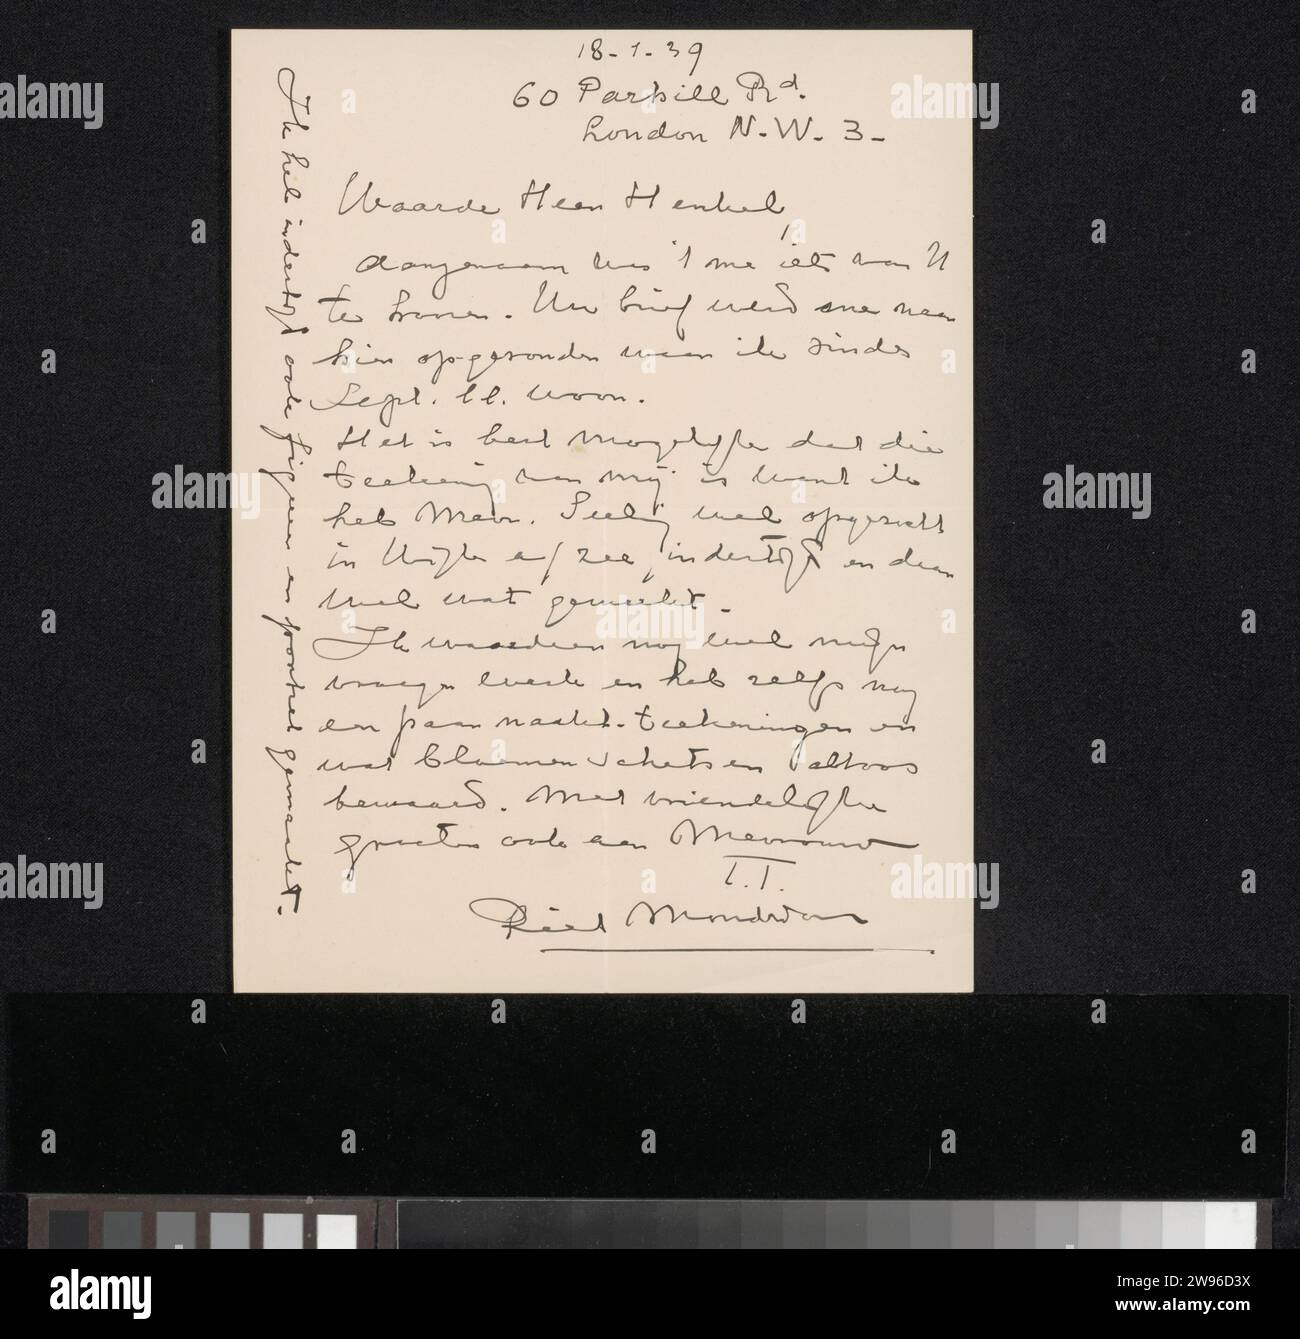 18-1-39
60 Parkill Rd.
London N.W. 3-
Waarde Heer Henkel,
Aangenaam was 't me iets van U
te hooren. Uw brief werd me naar
hier opgezonden waar ik sinds
Sept. ll. woon.
Het is best mogelijk dat die
teekening van mij is want ik
heb Mevr. Seelig wel opgezocht
in Wijk a/zee, indertijd en daar
wel wat gewerkt.
Ik waardeer nog wel mijn
vroeger werk en heb zelfs nog
een paar naakt-teekeningen en
wat bloemen schetsen altoos
bewaard. Met vriendelijke
groeten ook aan Mevrouw
T.T.
Piet Mondriaan
Ik heb indertijd ook figuur en portret gemaakt.
alamy
a
Image ID: 2W96D3X
www.alamy.com